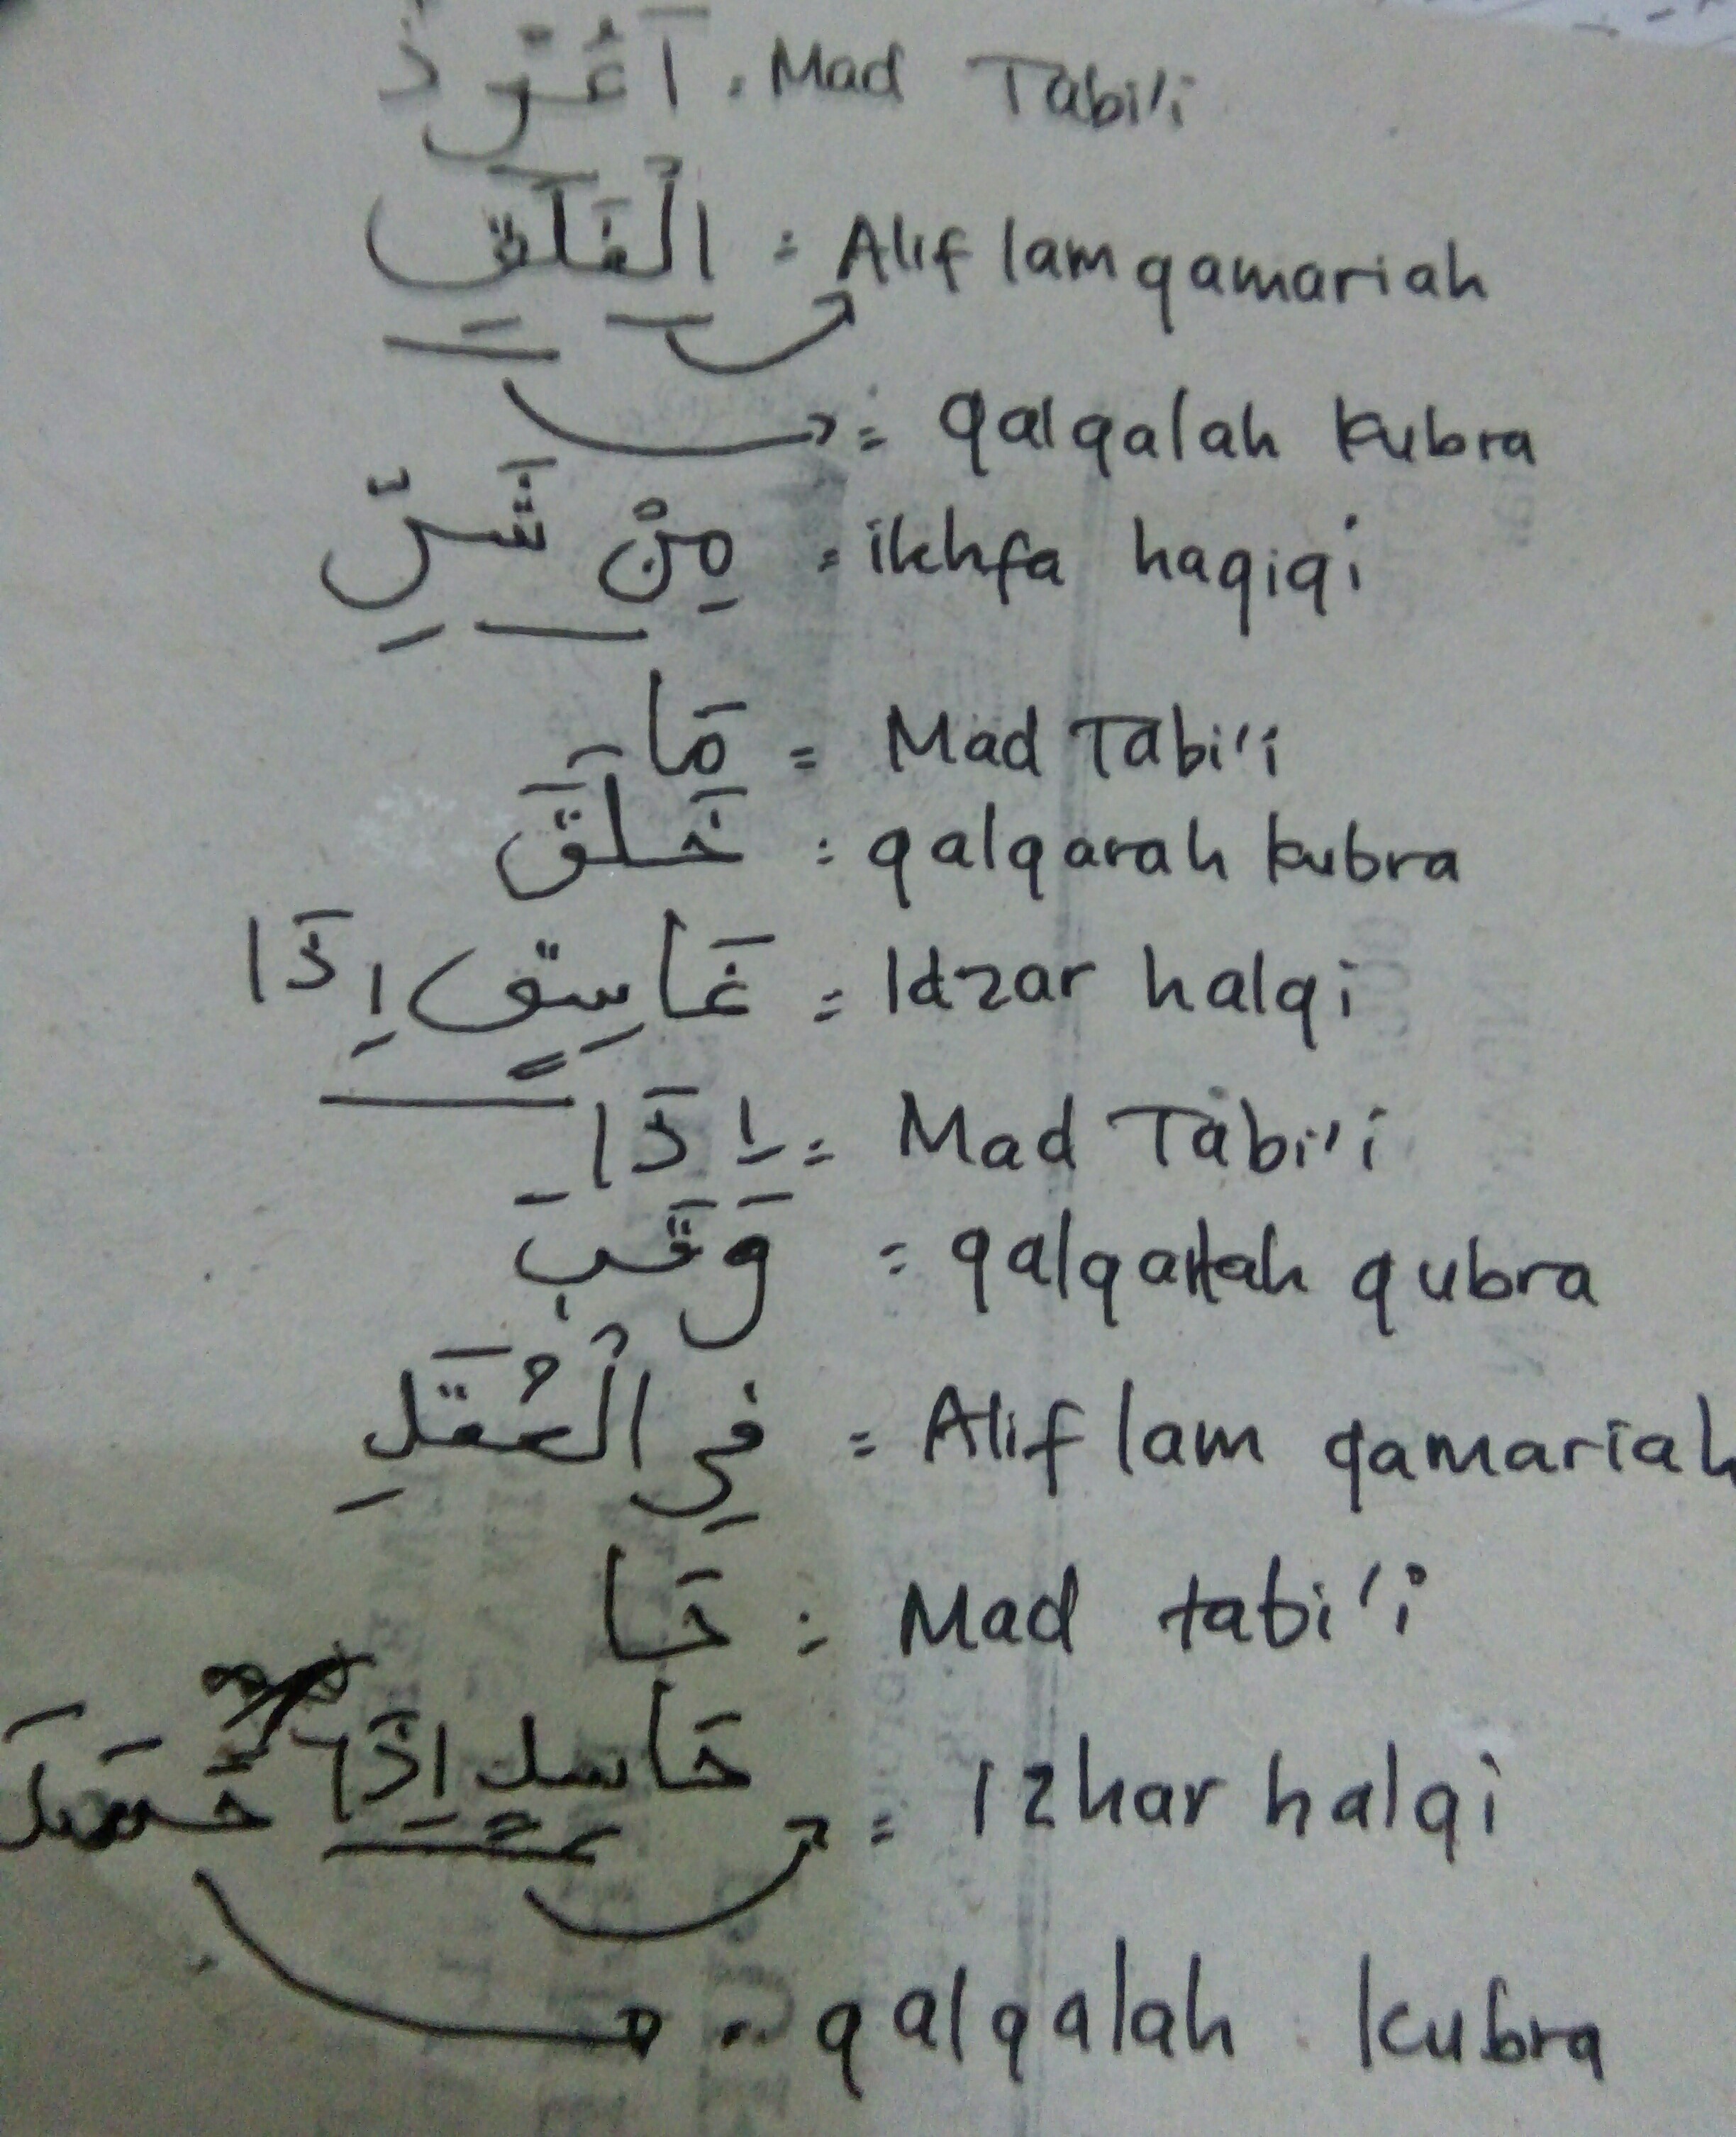 اَعُوْذُ . Mad Tabi'i
الْفَلَقِ = Alif lam qamariah
= qalqalah kubra
مِنْ شَرِّ = ikhfa haqiqi
مَا = Mad Tabi'i
خَلَقَ = qalqarah kubra
غَاسِقٍ اِذَا = Idzar halqi
اِذَا = Mad Tabi'i
وَقَبَ = qalqalah qubra
فِى الْعُقَدِ = Alif lam qamariah
حَا = Mad tabi'i
حَاسِدٍ اِذَا حَسَدَ = Izhar halqi
= qalqalah kubra